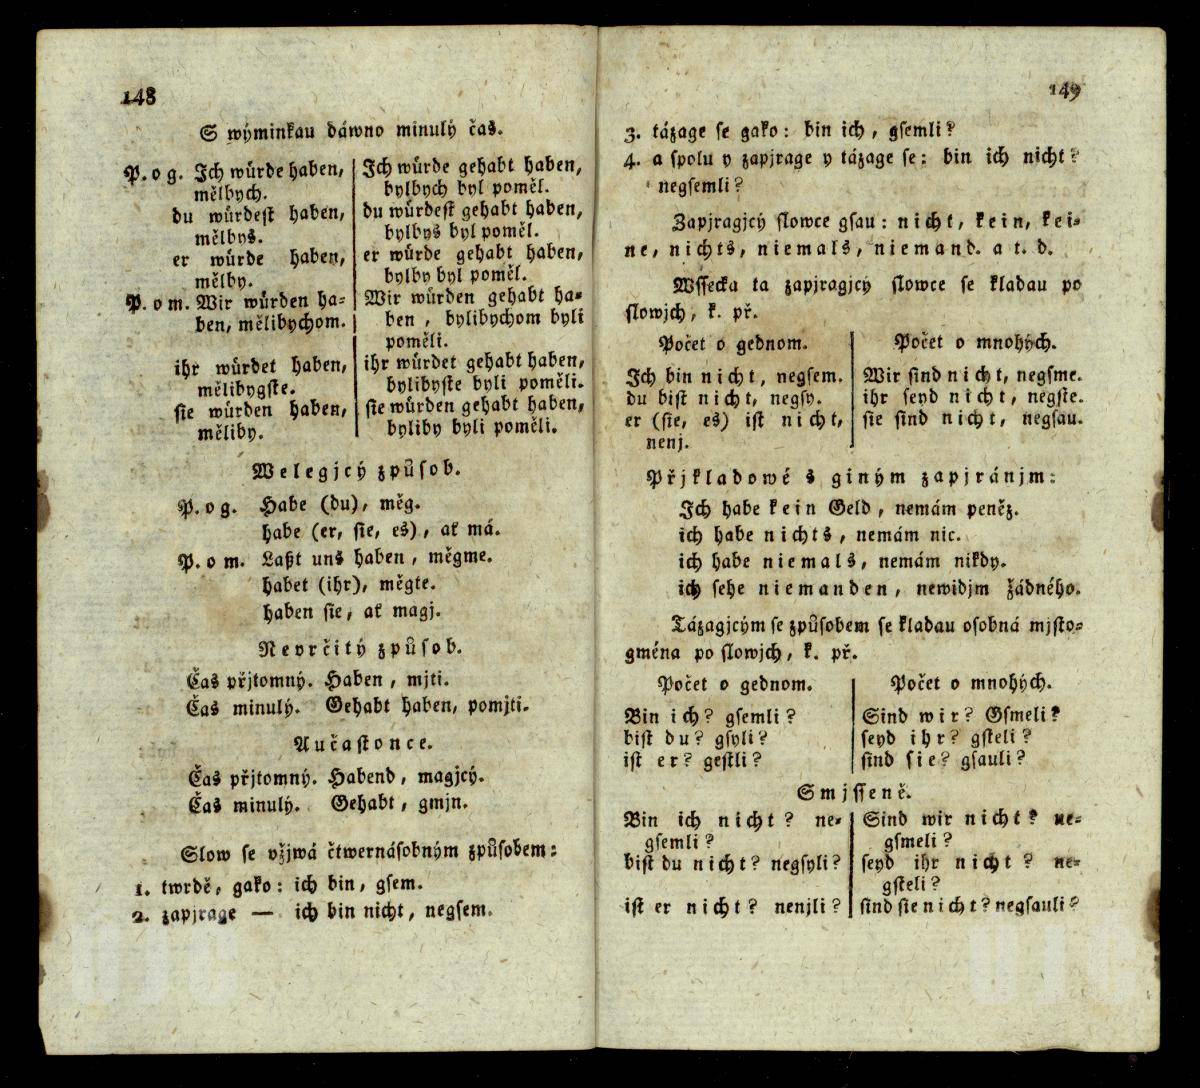 148
S wýminkau dáwno minulý čas.
P. o g. Ich würde haben,
mělbych.
du würdest haben,
mělbys.
er würde haben,
mělby.
P. o m. Wir würden ha=
ben, mělibychom.
ihr würdet haben,
mělibygste.
sie würden haben,
měliby.
Ich würde gehabt haben,
bylbych byl poměl.
du würdest gehabt haben,
bylbys byl poměl.
er würde gehabt haben,
bylby byl poměl.
Wir würden gehabt ha=
ben, bylibychom byli
poměli.
ihr würdet gehabt haben,
bylibyste byli poměli.
sie würden gehabt haben,
byliby byli poměli.
Welegjcý způsob.
P. o g. Habe (du), měg.
habe (er, sie, es), ať má.
P. o m. Laßt uns haben, měgme.
habet (ihr), měgte.
haben sie, ať magj.
Nevrčitý způsob.
Čas přjtomný. Haben, mjti.
Čas minulý. Gehabt haben, pomjti.
Aučastonce.
Čas přjtomný. Habend, magjcý.
Čas minulý. Gehabt, gmjn.
Slow se vžjwá čtwernásobným způsobem:
1. twrdě, gako: ich bin, gsem.
2. zapjrage — ich bin nicht, negsem.
149
3. tázage se gako: bin ich, gsemli?
4. a spolu y zapjrage y tázage se: bin ich nicht?
negsemli?
Zapjragjcý slowce gsau: nicht, kein, kei=
ne, nichts, niemals, niemand. a t. d.
Wssecka ta zapjragjcý slowce se kladau po
slowjch, k. př.
Počet o gednom.
Ich bin nicht, negsem.
du bist nicht, negsy.
er (sie, es) ist nicht,
nenj.
Počet o mnohých.
Wir sind nicht, negsme.
ihr seyd nicht, negste.
sie sind nicht, negsau.
Přjkladowé s giným zapjránjm:
Ich habe kein Geld, nemám peněz.
ich habe nichts, nemám nic.
ich habe niemals, nemám nikdy.
ich sehe niemanden, newidjm žádného.
Tázagjcým se způsobem se kladau osobná mjsto=
gména po slowjch, k. př.
Počet o gednom.
Bin ich? gsemli?
bist du? gsyli?
ist er? gestli?
Počet o mnohých.
Sind wir? Gsmeli?
seyd ihr? gsteli?
sind sie? gsauli?
Smjsseně.
Bin ich nicht? ne=
gsemli?
bist du nicht? negsyli?
ist er nicht? nenjli?
Sind wir nicht? ne=
gsmeli?
seyd ihr nicht? ne=
gsteli?
sind sie nicht? negsauli?